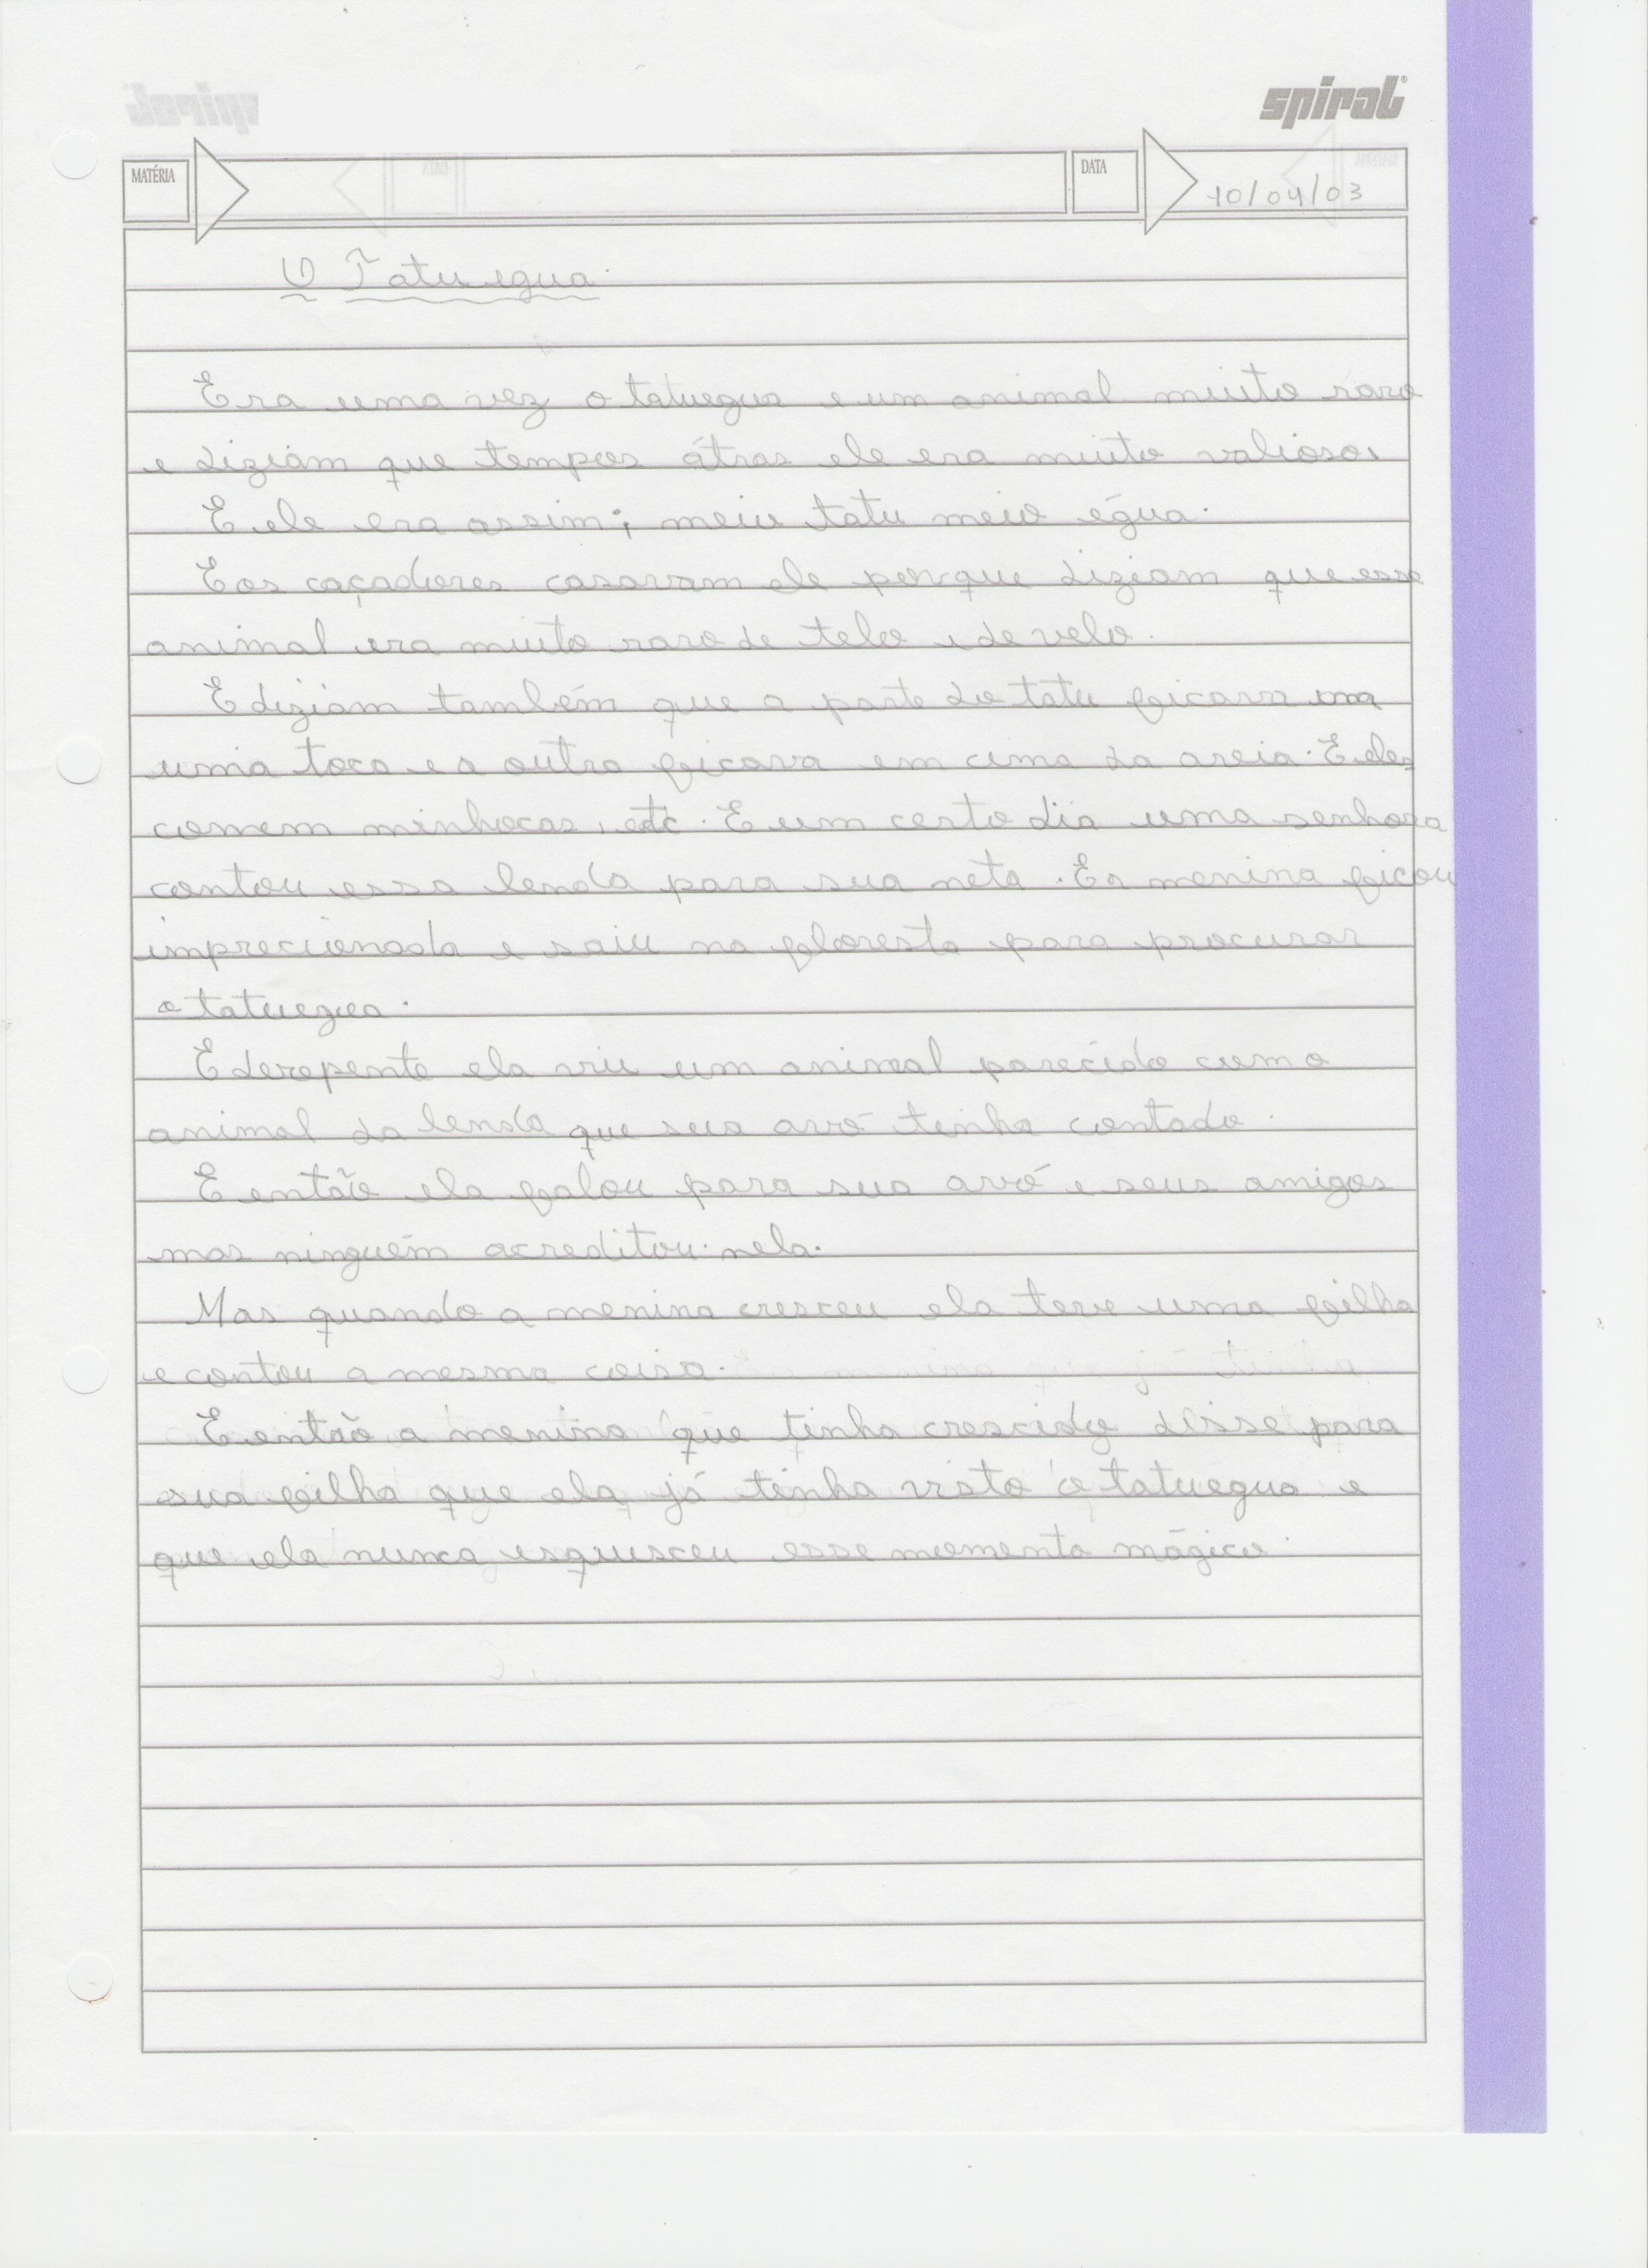 spiral
MATÉRIA
DATA
10/04/03
O Tatu egua.
Era uma vez o tatuegua e um animal muito raro
e diziam que tempos átras ele era muito valioso,
E ele era assim; meio tatu meio égua.
E os caçadores casavam ele porque diziam que esse
animal era muito raro de telo e de velo.
E diziam também que a parte do tatu ficava
uma toca e a outra ficava em cima da areia. E eles
comem minhocas, etc. E um certo dia uma senhora
contou essa lenda para sua neta. E a menina ficou
imprecionada e saiu na floresta para procurar
o tatuegua.
E derepente ela viu um animal parecido com o
animal da lenda que sua avó tinha contado.
E então ela falou para sua avó e seus amigos
mas ninguém acreditou nela.
Mas quando a menina cresceu ela teve uma filha
e contou a mesma coisa.
E então a menina que tinha crescido disse para
sua filha que ela já tinha visto o tatuegua e
que ela nunca esquesceu esse momento mágico.